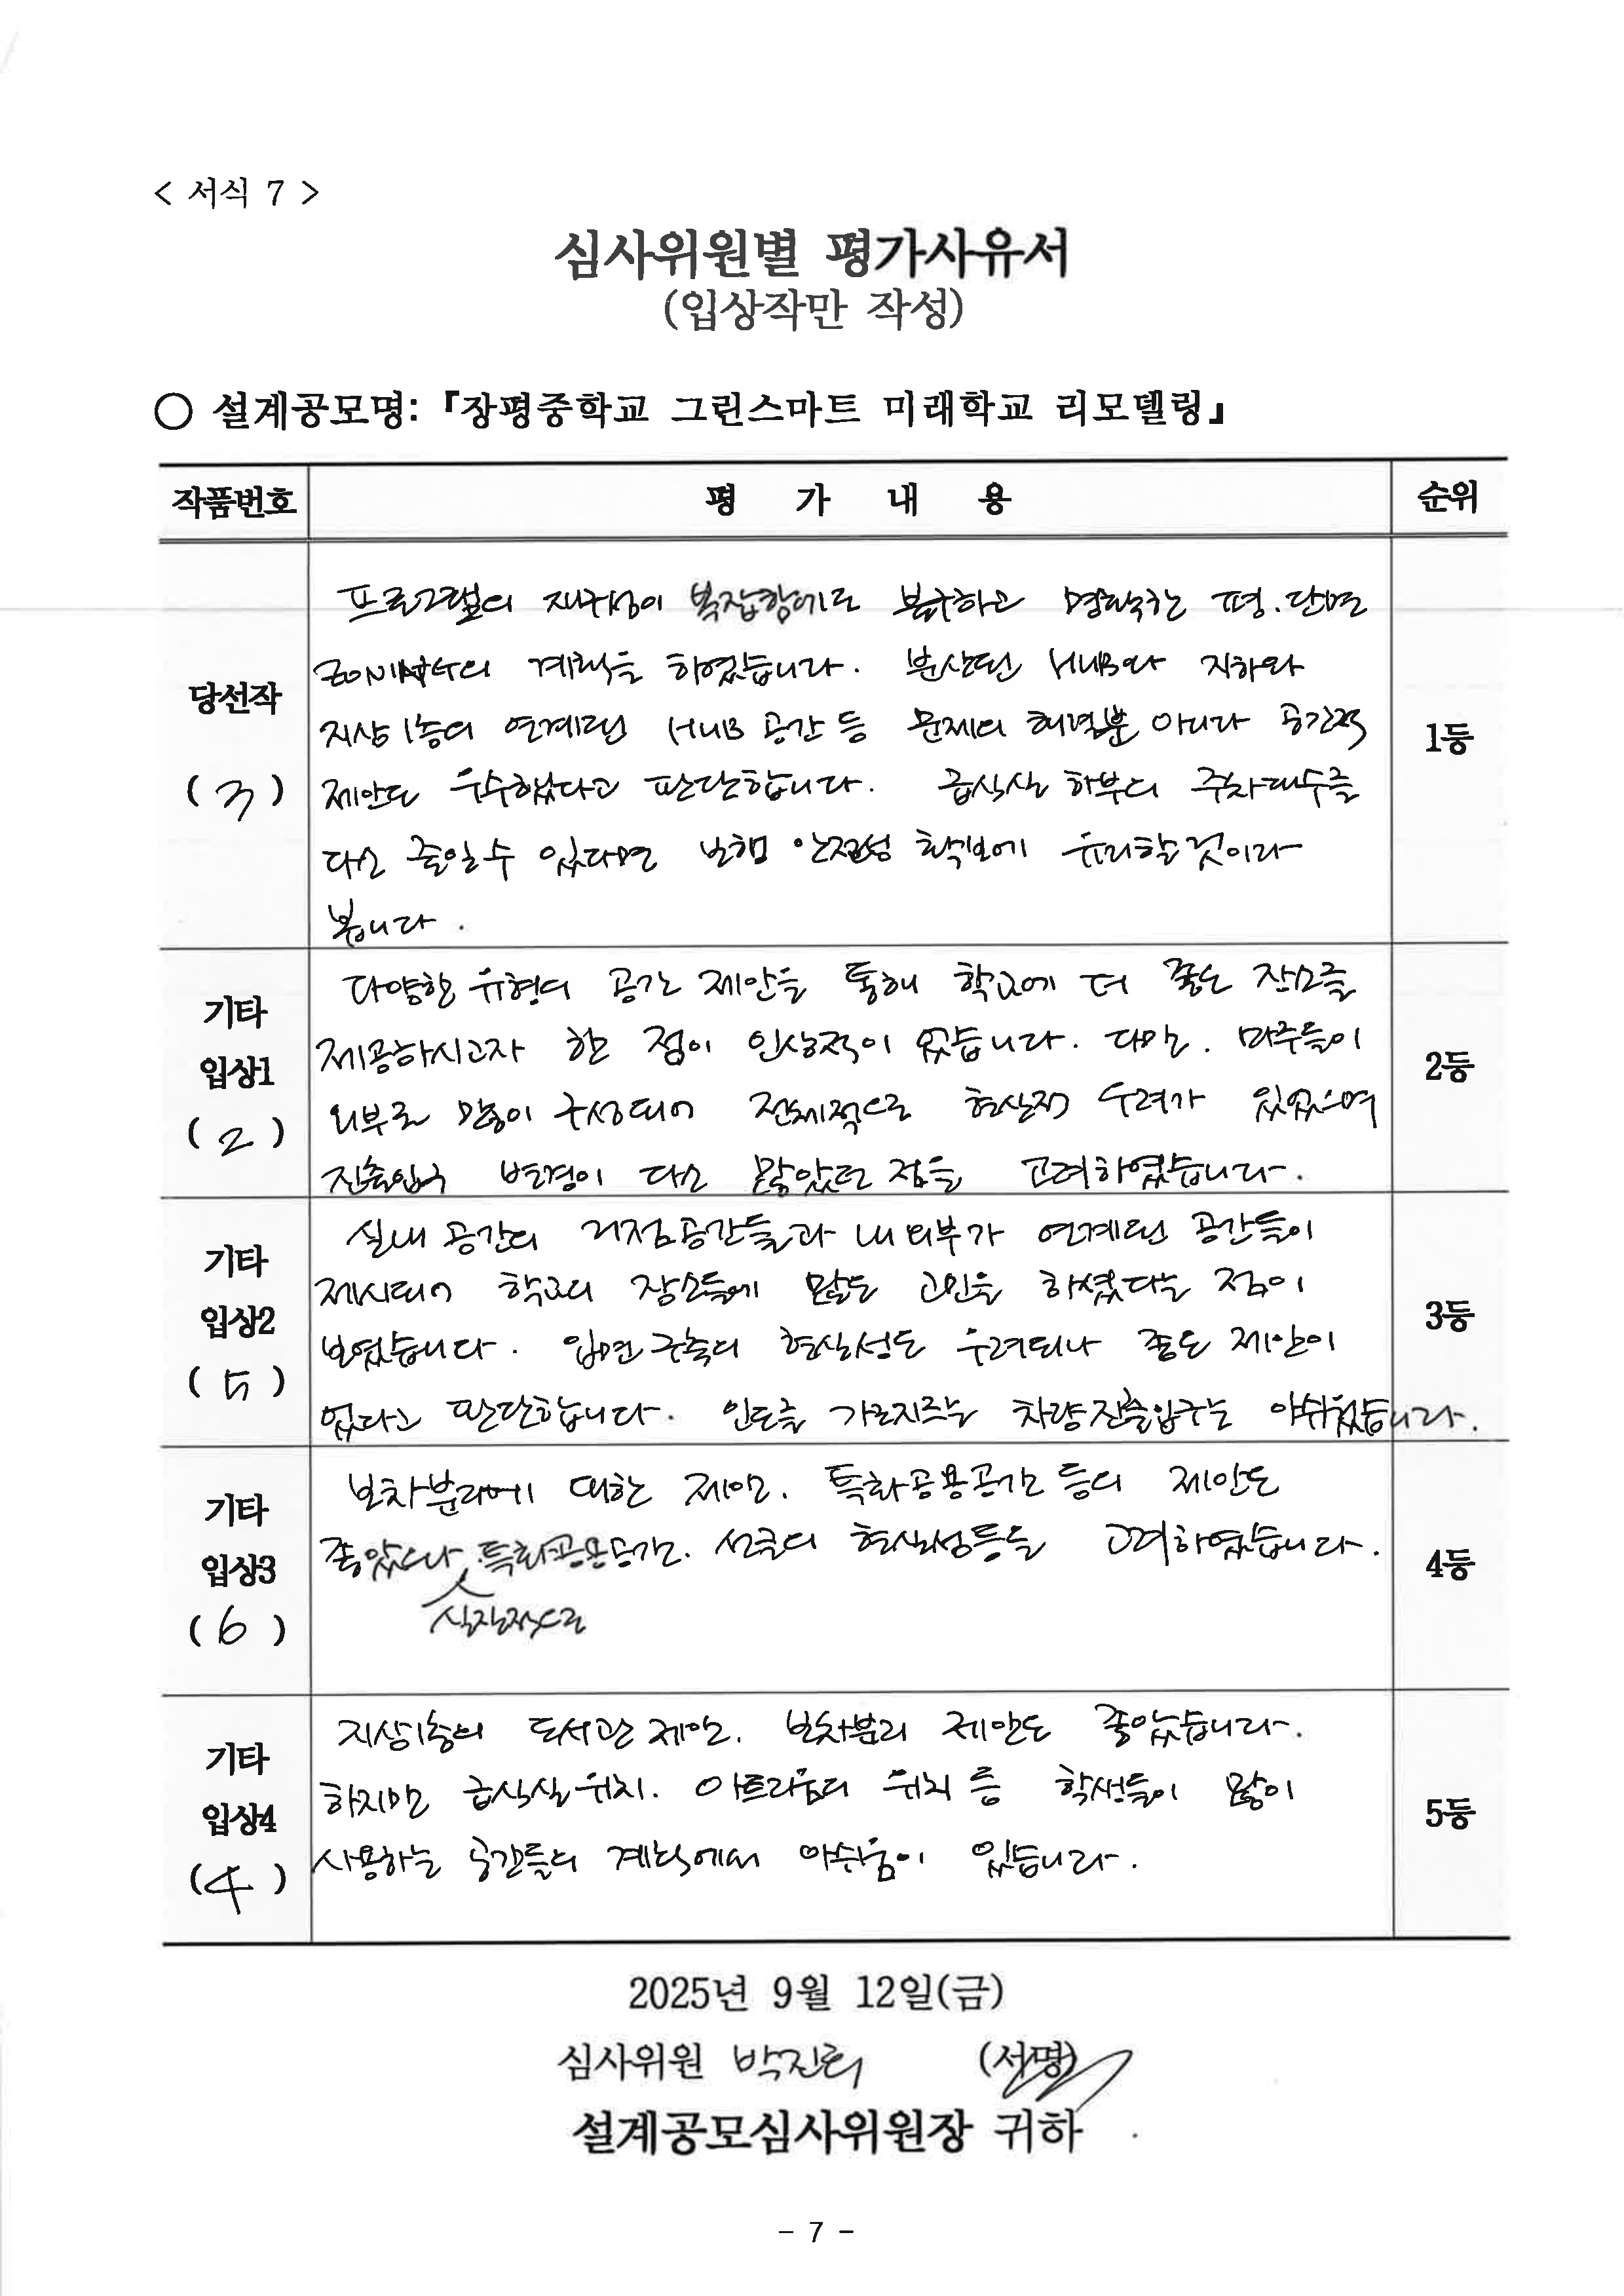 < 서식 7 >
심사위원별 평가사유서
(입상작만 작성)
○ 설계공모명:『장평중학교 그린스마트 미래학교 리모델링』
작품번호 평 가 내 용 순위
당선작
( 3 )
프로그램의 재구성이 복잡함에도 불구하고 명확한 평.단면
ZONING의 계획을 하였습니다. 분산된 HUB와 지하와
지상1층의 연계된 HUB 공간 등 문제의 해결뿐 아니라 공간적
제안도 우수했다고 판단합니다. 급식실 하부의 주차대수를
다소 줄일 수 있다면 보행 안전성 확보에 유리할 것이라
봅니다.
1등
기타
입상1
( 2 )
다양한 유형의 공간 제안을 통해 학교에 더 좋은 장소를
제공하시고자 한 점이 인상적이었습니다. 다만, 마주들이
외부로 많이 구성되어 전체적으로 현상적 우려가 있었으며
진출입구 변경이 다소 많았던 점을 고려하였습니다.
2등
기타
입상2
( 5 )
실내 공간의 거점공간들과 내외부가 연계된 공간들이
제시되어 학교의 장소들에 많은 고민을 하셨다는 점이
보였습니다. 입면 구축의 현실성은 우려되나 좋은 제안이
었다고 판단합니다. 인도를 가로지르는 차량진출입구는 아쉬웠습니다.
3등
기타
입상3
( 6 )
보차분리에 대한 제안. 특화공용공간 등의 제안도
좋았으나, 특화공용공간. 선큰의 현실성등을 고려하였습니다.
4등
기타
입상4
( 4 )
지상1층의 도서관 제안. 보차분리 제안도 좋았습니다.
하지만 급식실 위치. 아트리움의 위치 등 학생들이 많이
사용하는 공간들의 계획에서 아쉬움이 있습니다.
5등
2025년 9월 12일(금)
심사위원 (서명)
설계공모심사위원장 귀하
- 7 -